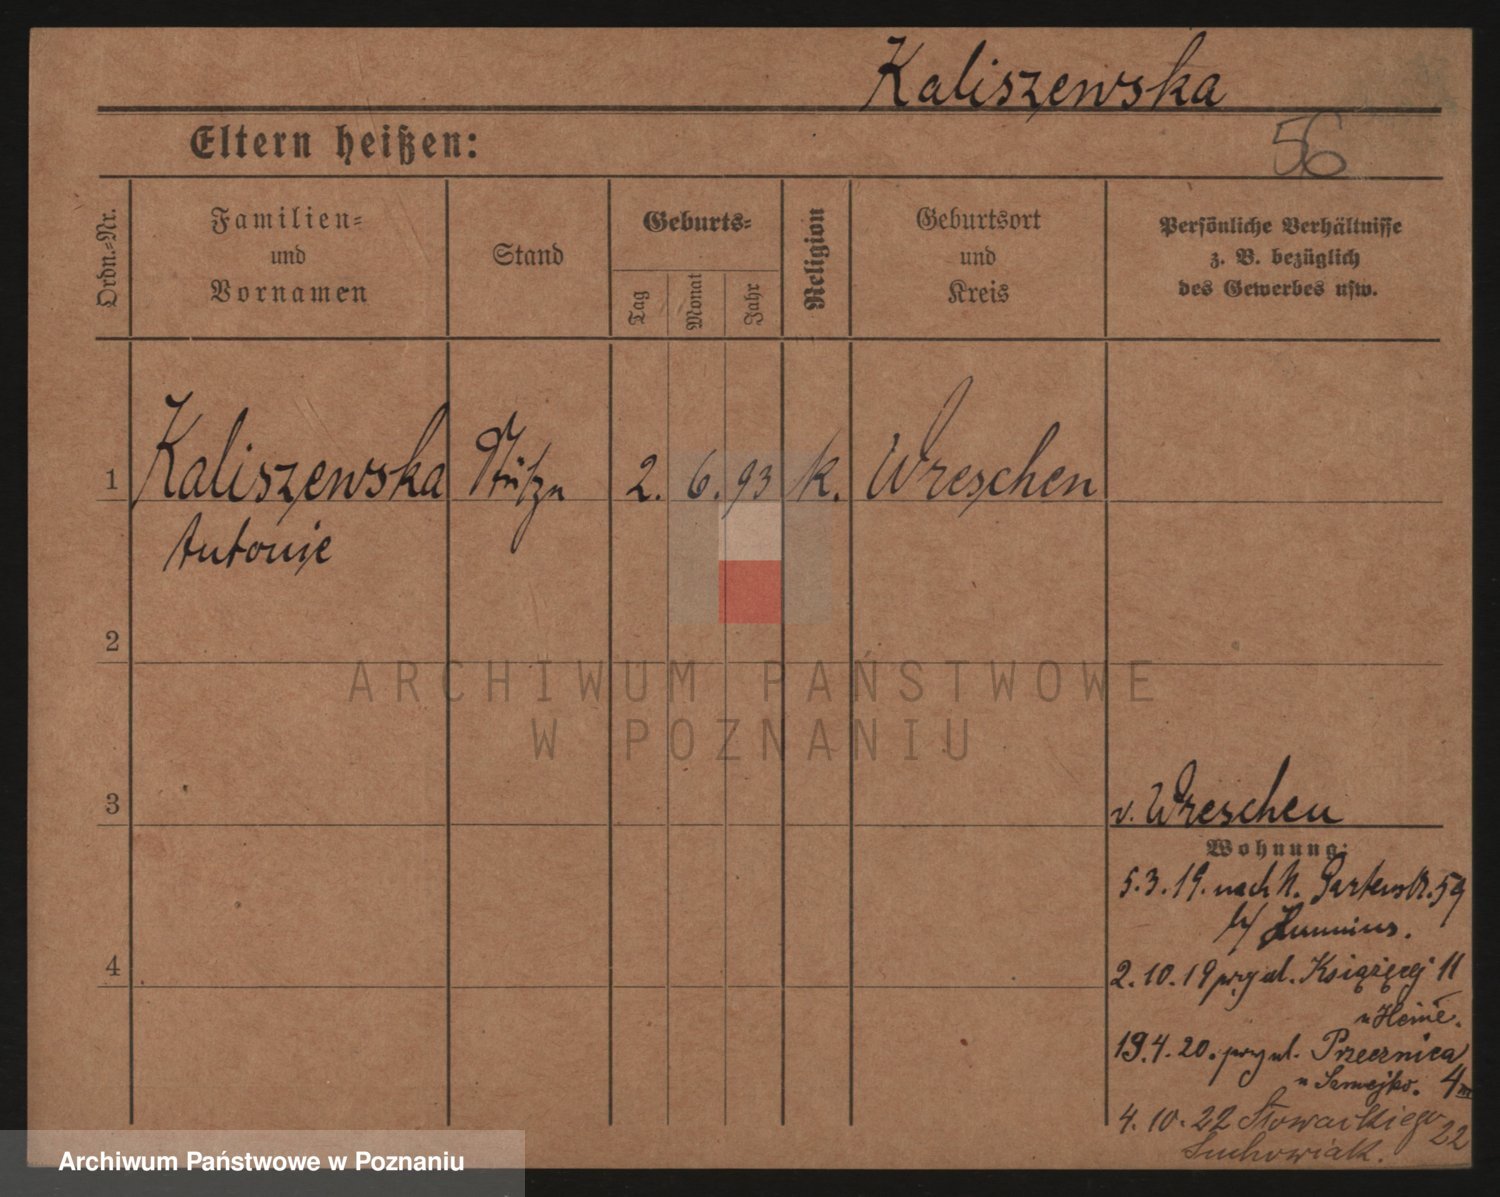 Kaliszewska
56
Eltern heißen:
Ordn.=Nr.
Familien=
und
Vornamen
Stand
Geburts=
Tag
Monat
Jahr
Religion
Geburtsort
und
Kreis
Persönliche Verhältnisse
z. B. bezüglich
des Gewerbes usw.
1
Kaliszewska
Antonie
2. 6. 93
k.
Wreschen
2
3
4
v. Wreschen
Wohnung:
5.3.19. nach N. Gartenstr. 59
b/
2.10.19 przy ul. Książęcej 11
u Heine.
19.4.20. przy ul. Przecznica
4
4.10.22 Słowackiego 22
Suchowiak.
ARCHIWUM PAŃSTWOWE
W POZNANIU
Archiwum Państwowe w Poznaniu